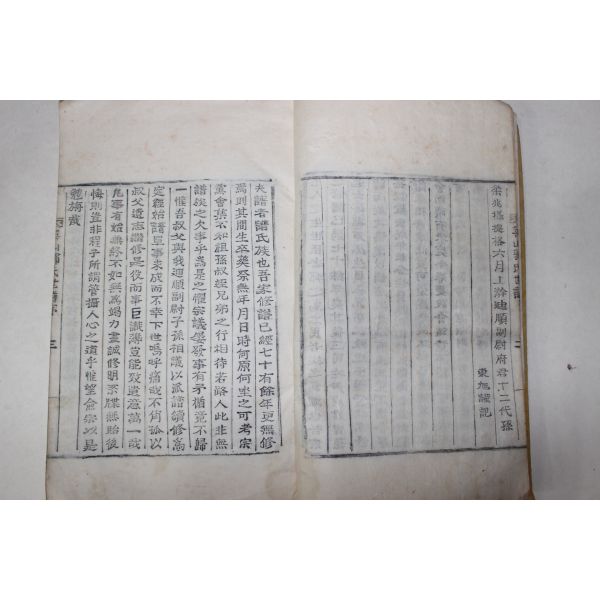 柔兆堪攝格六月上澣迪順副尉府君十二代孫
東旭謹記
夫譜者譜氏族也吾家修譜已經七十有餘年更無修
焉則其間生卒葬祭無年月日時何原何坐之可考宗
黨會集不知祖孫叔姪兄弟之行相待若路人此非無
譜族之欠事乎爲是之懼宗議屢發事有矛楯竟不歸
一惟吾叔父與我迪順副尉子孫相議以派譜續修爲
定經始譜單事未成而不幸下世嗚呼痛哉不肖孤以
叔父遺志謂修是役而事巨識薄豈能致遺意萬一哉
凡事有始無終不如無爲竭力盡誠修明宗牒無貽後
悔則豈非程子所謂管攝人心之道乎惟望僉宗以是
體梅哉